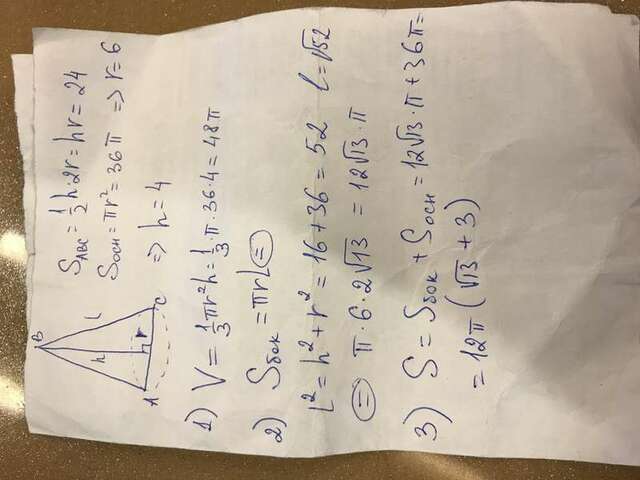 B
l
h
r
A
C
S_ABC = 1/2 h·2r = hr = 24
S_осн = πr² = 36π => r = 6
=> h = 4
1) V = 1/3 πr²h = 1/3·π·36·4 = 48π
2) S_бок = πrL =
L² = h² + r² = 16 + 36 = 52 l = √52
= π·6·2√13 = 12√13·π
3) S = S_бок + S_осн = 12√13·π + 36π =
= 12π (√13 + 3)